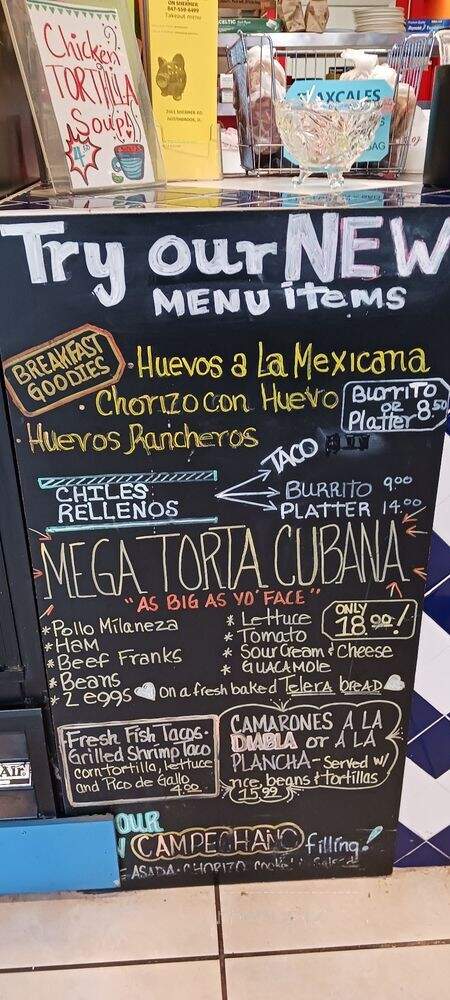 Chicken
TORTILLA
Soup!
4.
ON SHERMER
847-559-6499
Takeout menu
NORTHBROOK, IL.
CELTIC
BAG
Try our NEW
MENU items
BREAKFAST
GOODIES
· Huevos a La Mexicana
· Chorizo con Huevo
· Huevos Rancheros
BURRITO
OR
Platter 8.50
CHILES
RELLENOS
TACO
BURRITO 9.00
PLATTER 14.00
MEGA TORTA CUBANA
"AS BIG AS YO' FACE"
* Pollo Milaneza
* HAM
* Beef Franks
* Beans
* 2 eggs
* Lettuce
* Tomato
* Sour Cream & Cheese
* GUACAMOLE
ONLY
18.00!
On a fresh baked Telera bread
Fresh Fish Tacos·
Grilled Shrimp Taco
corn tortilla, lettuce
and Pico de Gallo
4.90
CAMARONES A LA
DIABLA or A LA
PLANCHA - Served w/
rice, beans & tortillas
15.99
OUR
CAMPECHANO filling!
ASADA · CHORIZO